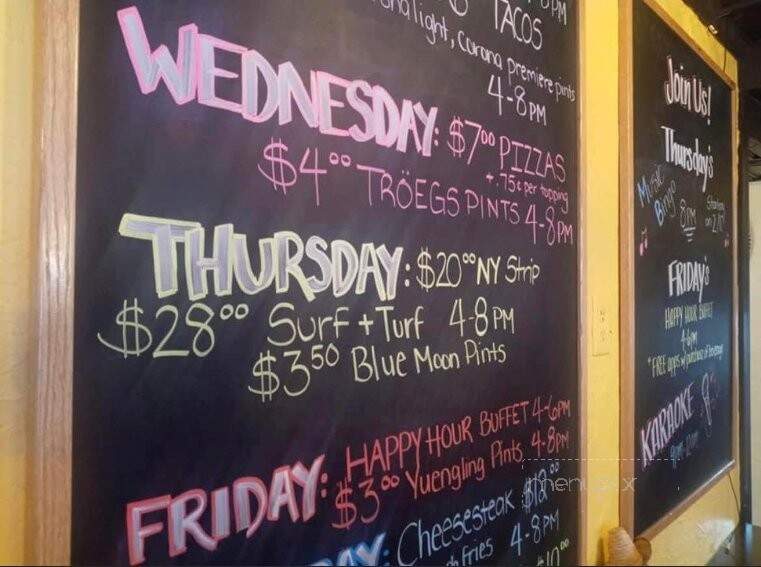 TACOS
light, Corona premiere pints
4-8PM
WEDNESDAY: $7⁰⁰ PIZZAS
+.75¢ per topping
$4⁰⁰ TRÖEGS PINTS 4-8PM
THURSDAY: $20⁰⁰ NY Strip
$28⁰⁰ Surf + Turf 4-8PM
$3⁵⁰ Blue Moon Pints
FRIDAY: HAPPY HOUR BUFFET 4-6PM
$3⁰⁰ Yuengling Pints 4-8PM
AY: Cheesesteak $12⁰⁰
Fries 4-8PM
$10⁰⁰
Join Us!
Thursday's
Music
Bingo
8PM
Starting
on
FRIDAY's
HAPPY HOUR BUFFET
4-6PM
*FREE apps w/ purchase of beverage
KARAOKE
9pm-